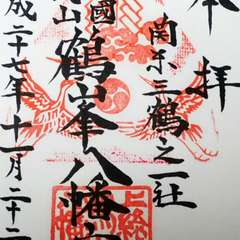 奉拝
関東三鶴之一社
國
鶴峯八幡宮
山
成二十七年十一月二十二